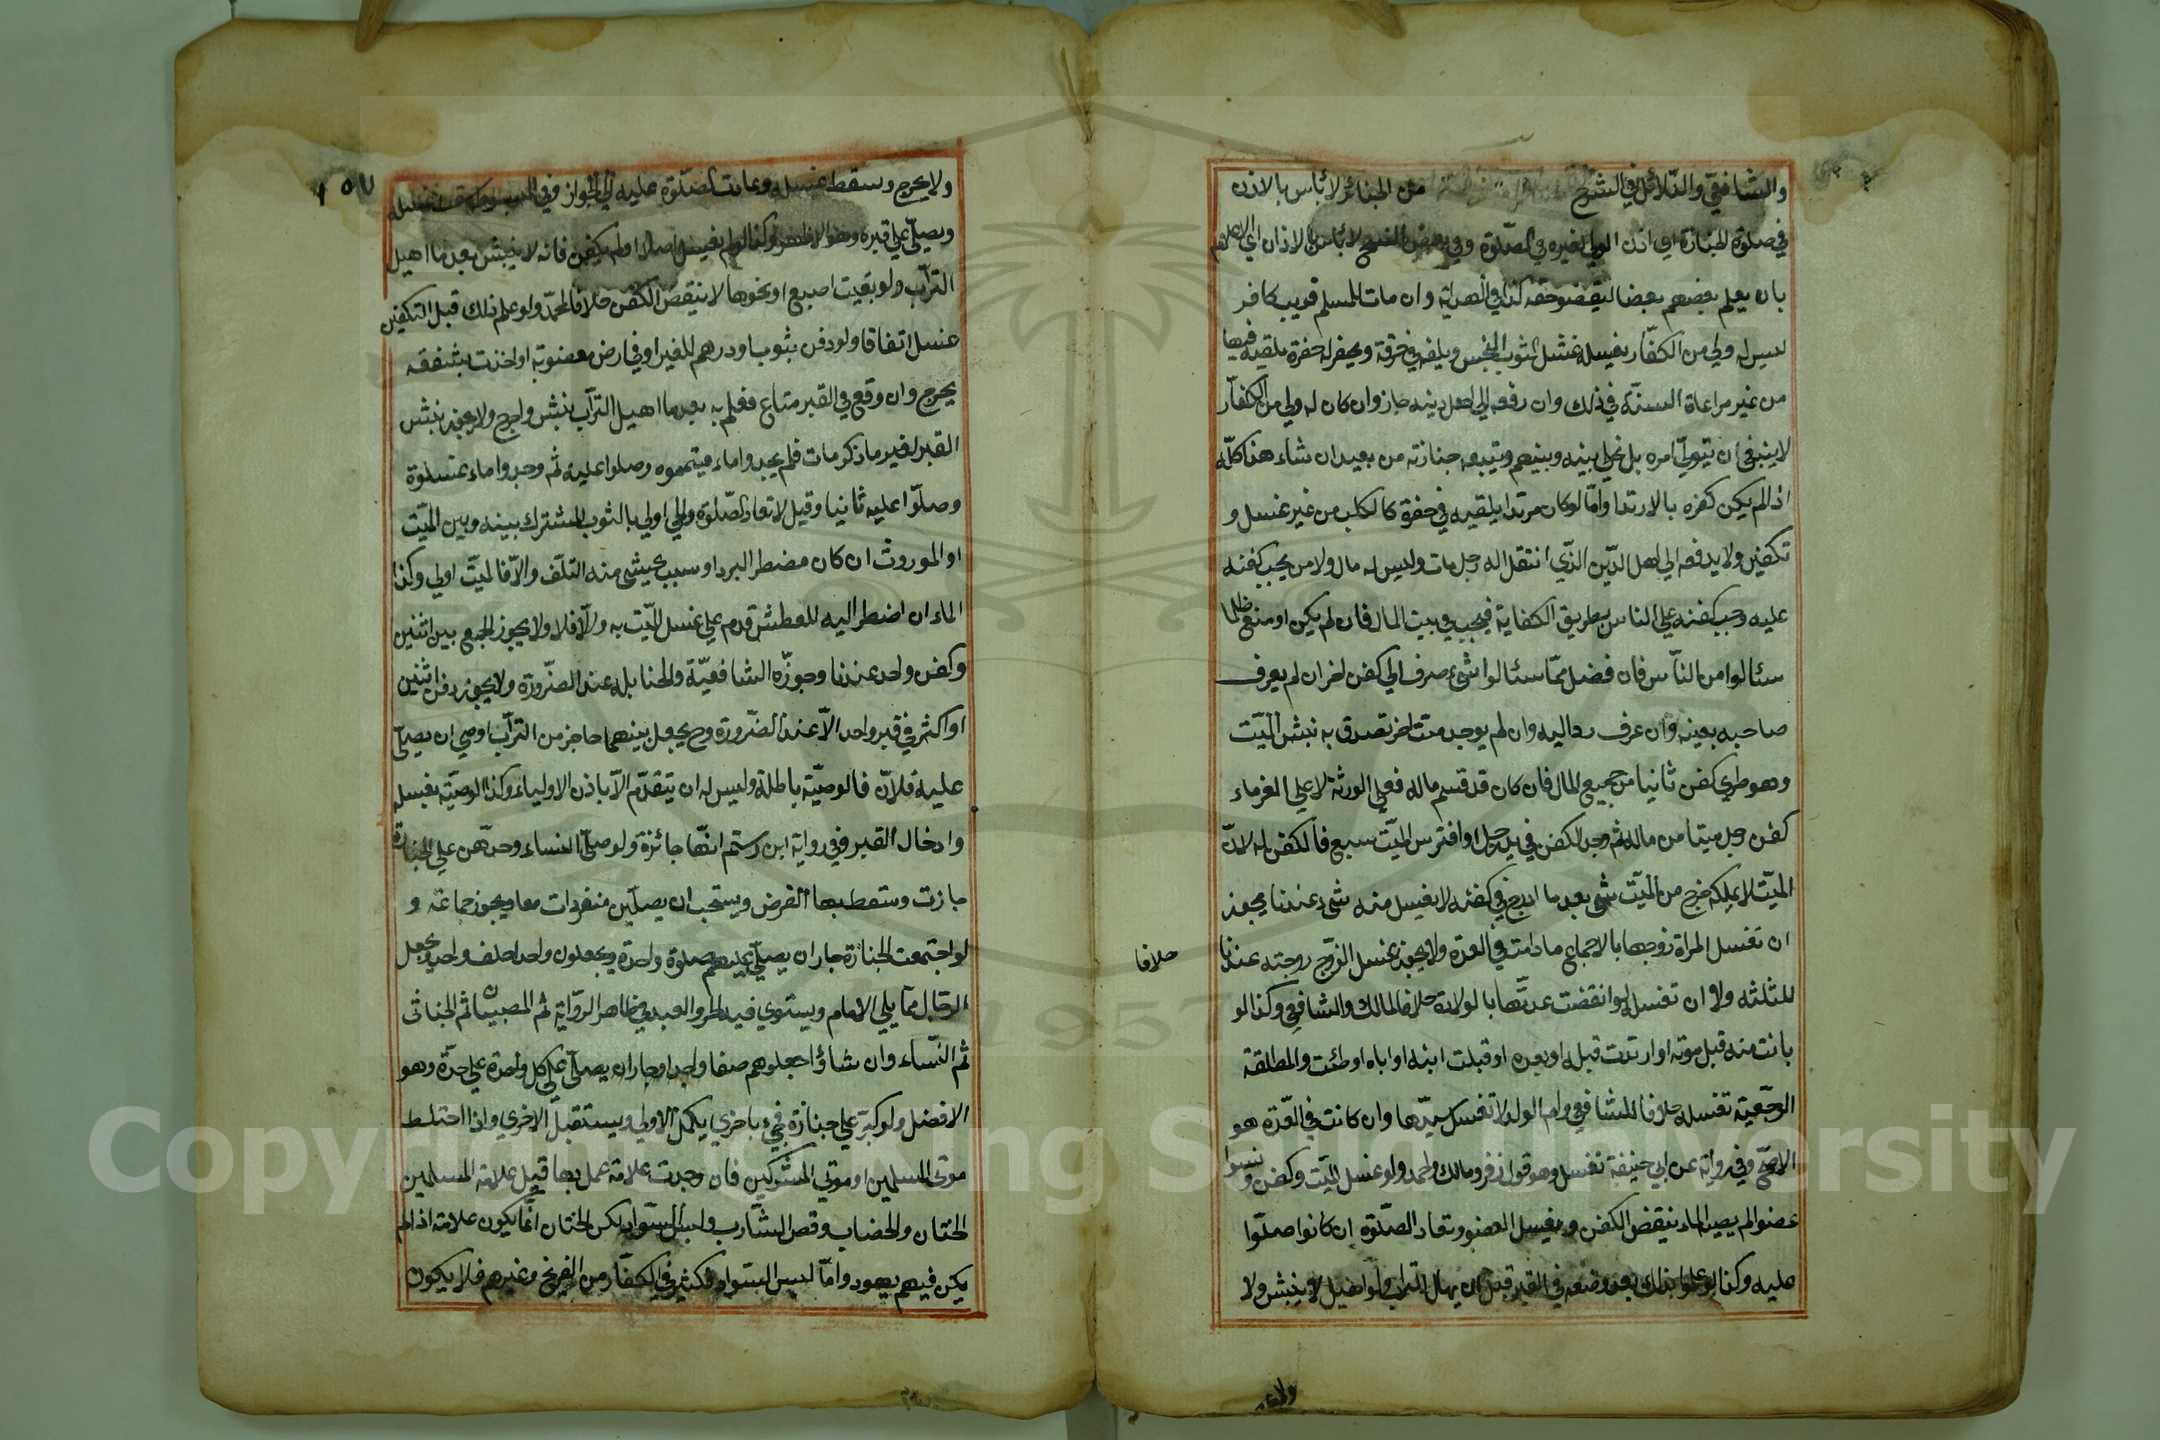 والشافعي والدلائل في الشرح من الجنائز لا بأس بالاذن
في صلوة الجنازة اي اذن الولي لغيره في الصلوة وفي بعض النسخ لا بأس بالاذان اي الاعلام
بان يعلم بعضهم بعضا ليقضوا حقه كذا في الهداية وان مات للمسلم قريب كافر
ليس له ولي من الكفار يغسله غسل الثوب النجس ويلفه في خرقة ويحفر له حفرة يلقيه فيها
من غير مراعاة السنة في ذلك وان رفعه الي اهل دينه جاز وان كان له ولي من الكفار
لا ينبغي ان يتولي امره بل يخلي بينه وبينهم ويتبع جنازته من بعيد ان شاء هذا كله
اذا لم يكن كفره بالارتداد واما لو كان مرتدا يلقيه في حفرة كالكلب من غير غسل و
تكفين ولا يدفعه الي اهل الدين الذي انتقل اله رجل مات وليس له مال ولا من يجب كفنه
عليه وجب كفنه علي الناس بطريق الكفاية فيجب في بيت المال فان لم يكن او منع ظلما
سئالوا من الناس فان فضل مما سئالوا شيء صرف الي كفن اخر ان لم يعرف
صاحبه بعينه وان عرف رد اليه وان لم يوجد ميت اخر تصدق به نبش الميت
وهو طري كفن ثانيا من جميع المال فان كان قد قسم ماله فعلي الورثة لا علي الغرماء
كفن رجل ميتا من ماله ثم وجد الكفن في يد رجل او افترس الميت سبع فالكفن له لان
الميت لا يملكه خرج من الميت شيء بعد ما ادرج في كفنه لا يغسل منه شيء عندنا يجوز
ان تغسل المراة زوجها بالاجماع ما دامت في العدة ولا يجوز غسل الزوج زوجته عندنا
خلافا
للثلثه ولا ان تغسله لو انقضت عدتها بالولادة خلافا لمالك والشافعي وكذا لو
بانت منه قبل موته او ارتدت قبله او بعده او قبلت ابنه او اباه او وطئت والمطلقة
الرجعية تغسله خلافا للشافعي وام الولد لا تغسل سيدها وان كانت في العدة هو
الاصح وفي رواية عن ابي حنيفة تغسل وهو قول زفر ومالك واحمد ولو غسل الميت وكفن ونسوا
عضوا لم يصبه الماء ينقض الكفن ويغسل العضو وتعاد الصلوة ان كانوا صلوا
عليه وكذا لو علموا بذلك بعد وضعه في القبر قبل ان يهال التراب ولو اهيل لا ينبش ولا
ولا يخرج
ولا يخرج وسقط غسله وعادت الصلوة عليه الي الجواز وفي
ويصلي علي قبره وهو الاظهر وكذا لو لم يغسل اصلا او لم يكفن فانه لا ينبش بعد ما اهيل
التراب ولو بقيت اصبع او نحوها لا ينقض الكفن خلافا لمحمد ولو علم ذلك قبل التكفين
غسل اتفاقا ولو دفن بثوب او درهم للغير او في ارض مغصوبة او اخذت بشفعة
يخرج وان وقع في القبر متاع فعلم به بعد ما اهيل التراب ينبش واخرج ولا يجوز نبش
القبر لغير ما ذكر مات فلم يجدوا ماء فيتمموه وصلوا عليه ثم وجدوا ماء غسلوه
وصلوا عليه ثانيا وقيل لا تعاد الصلوة والحي اولي بالثوب المشترك بينه وبين الميت
او الموروث ان كان مضطرا لبرد او سبب يخشي منه التلف والا فالميت اولي وكذا
الماء ان اضطر اليه للعطش قدم علي غسل الميت به والا فلا ولا يجوز الجمع بين اثنين
وكفن واحد عندنا وجوزه الشافعية والحنابلة عند الضرورة ولا يجوز دفن اثنين
او اكثر في قبر واحد الا عند الضرورة وح يجعل بينهما حاجز من التراب اوصي ان يصلي
عليه فلان فالوصية باطلة وليس له ان يتقدم الا باذن الاولياء وكذا الوصية بغسله
وادخال القبر وفي رواية ابن رستم انها جائزة ولو صلي النساء وحدهن علي الجنازة
جازت وسقط بها الفرض ويستحب ان يصلين منفردات معا ويجوز جماعة و
لو اجتمعت الجنازة جاز ان يصلي عليهم صلوة واحدة ويجعلون واحدا خلف واحد ويجعل
الرجال مما يلي الامام ويستوي فيه الحر والعبد في ظاهر الرواية ثم الصبيان ثم الخناثي
ثم النساء وان شاؤا جعلوهم صفا واحدا وجاز ان يصلي علي كل واحدة علي حدة وهو
الافضل ولو كبر علي جنازة فجيء باخري يكمل الاولي ويستقبل الاخري واذا اختلط
موتي المسلمين او موتي المشركين فان وجدت علامة عمل بها قيل علامة المسلمين
الختان والخضاب وقص الشارب ولبس السواد لكن الختان انما يكون علامة اذا لم
يكن فيهم يهود واما لبس السواد فكثير في الكفار من الفرنج وغيرهم فلا يكون
١٥٧
Copyright © King Saud University
1957